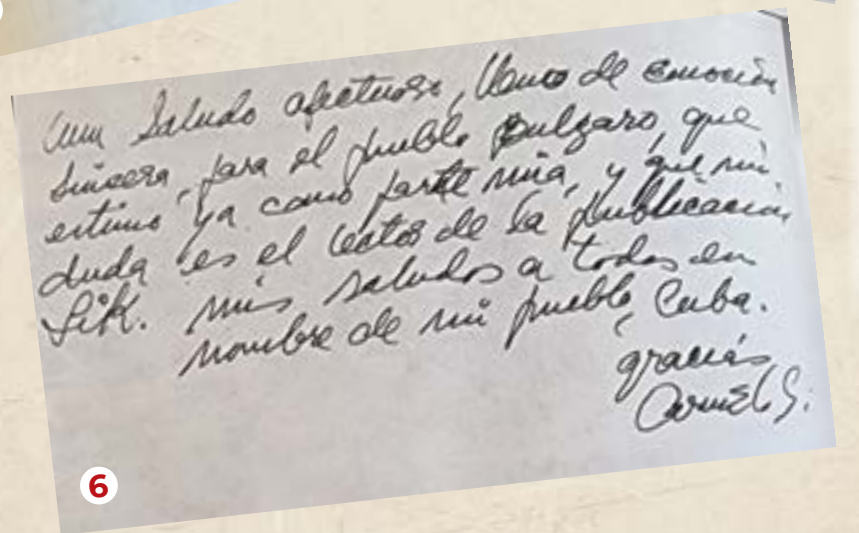 Un Saludo afectuoso, lleno de emoción
sincera, para el pueblo bulgaro, que
estimo ya como parte mia, y que sin
duda es el lector de la publicación
Lik. mis saludos a todos en
nombre de mi pueblo, Cuba.
gracias
6